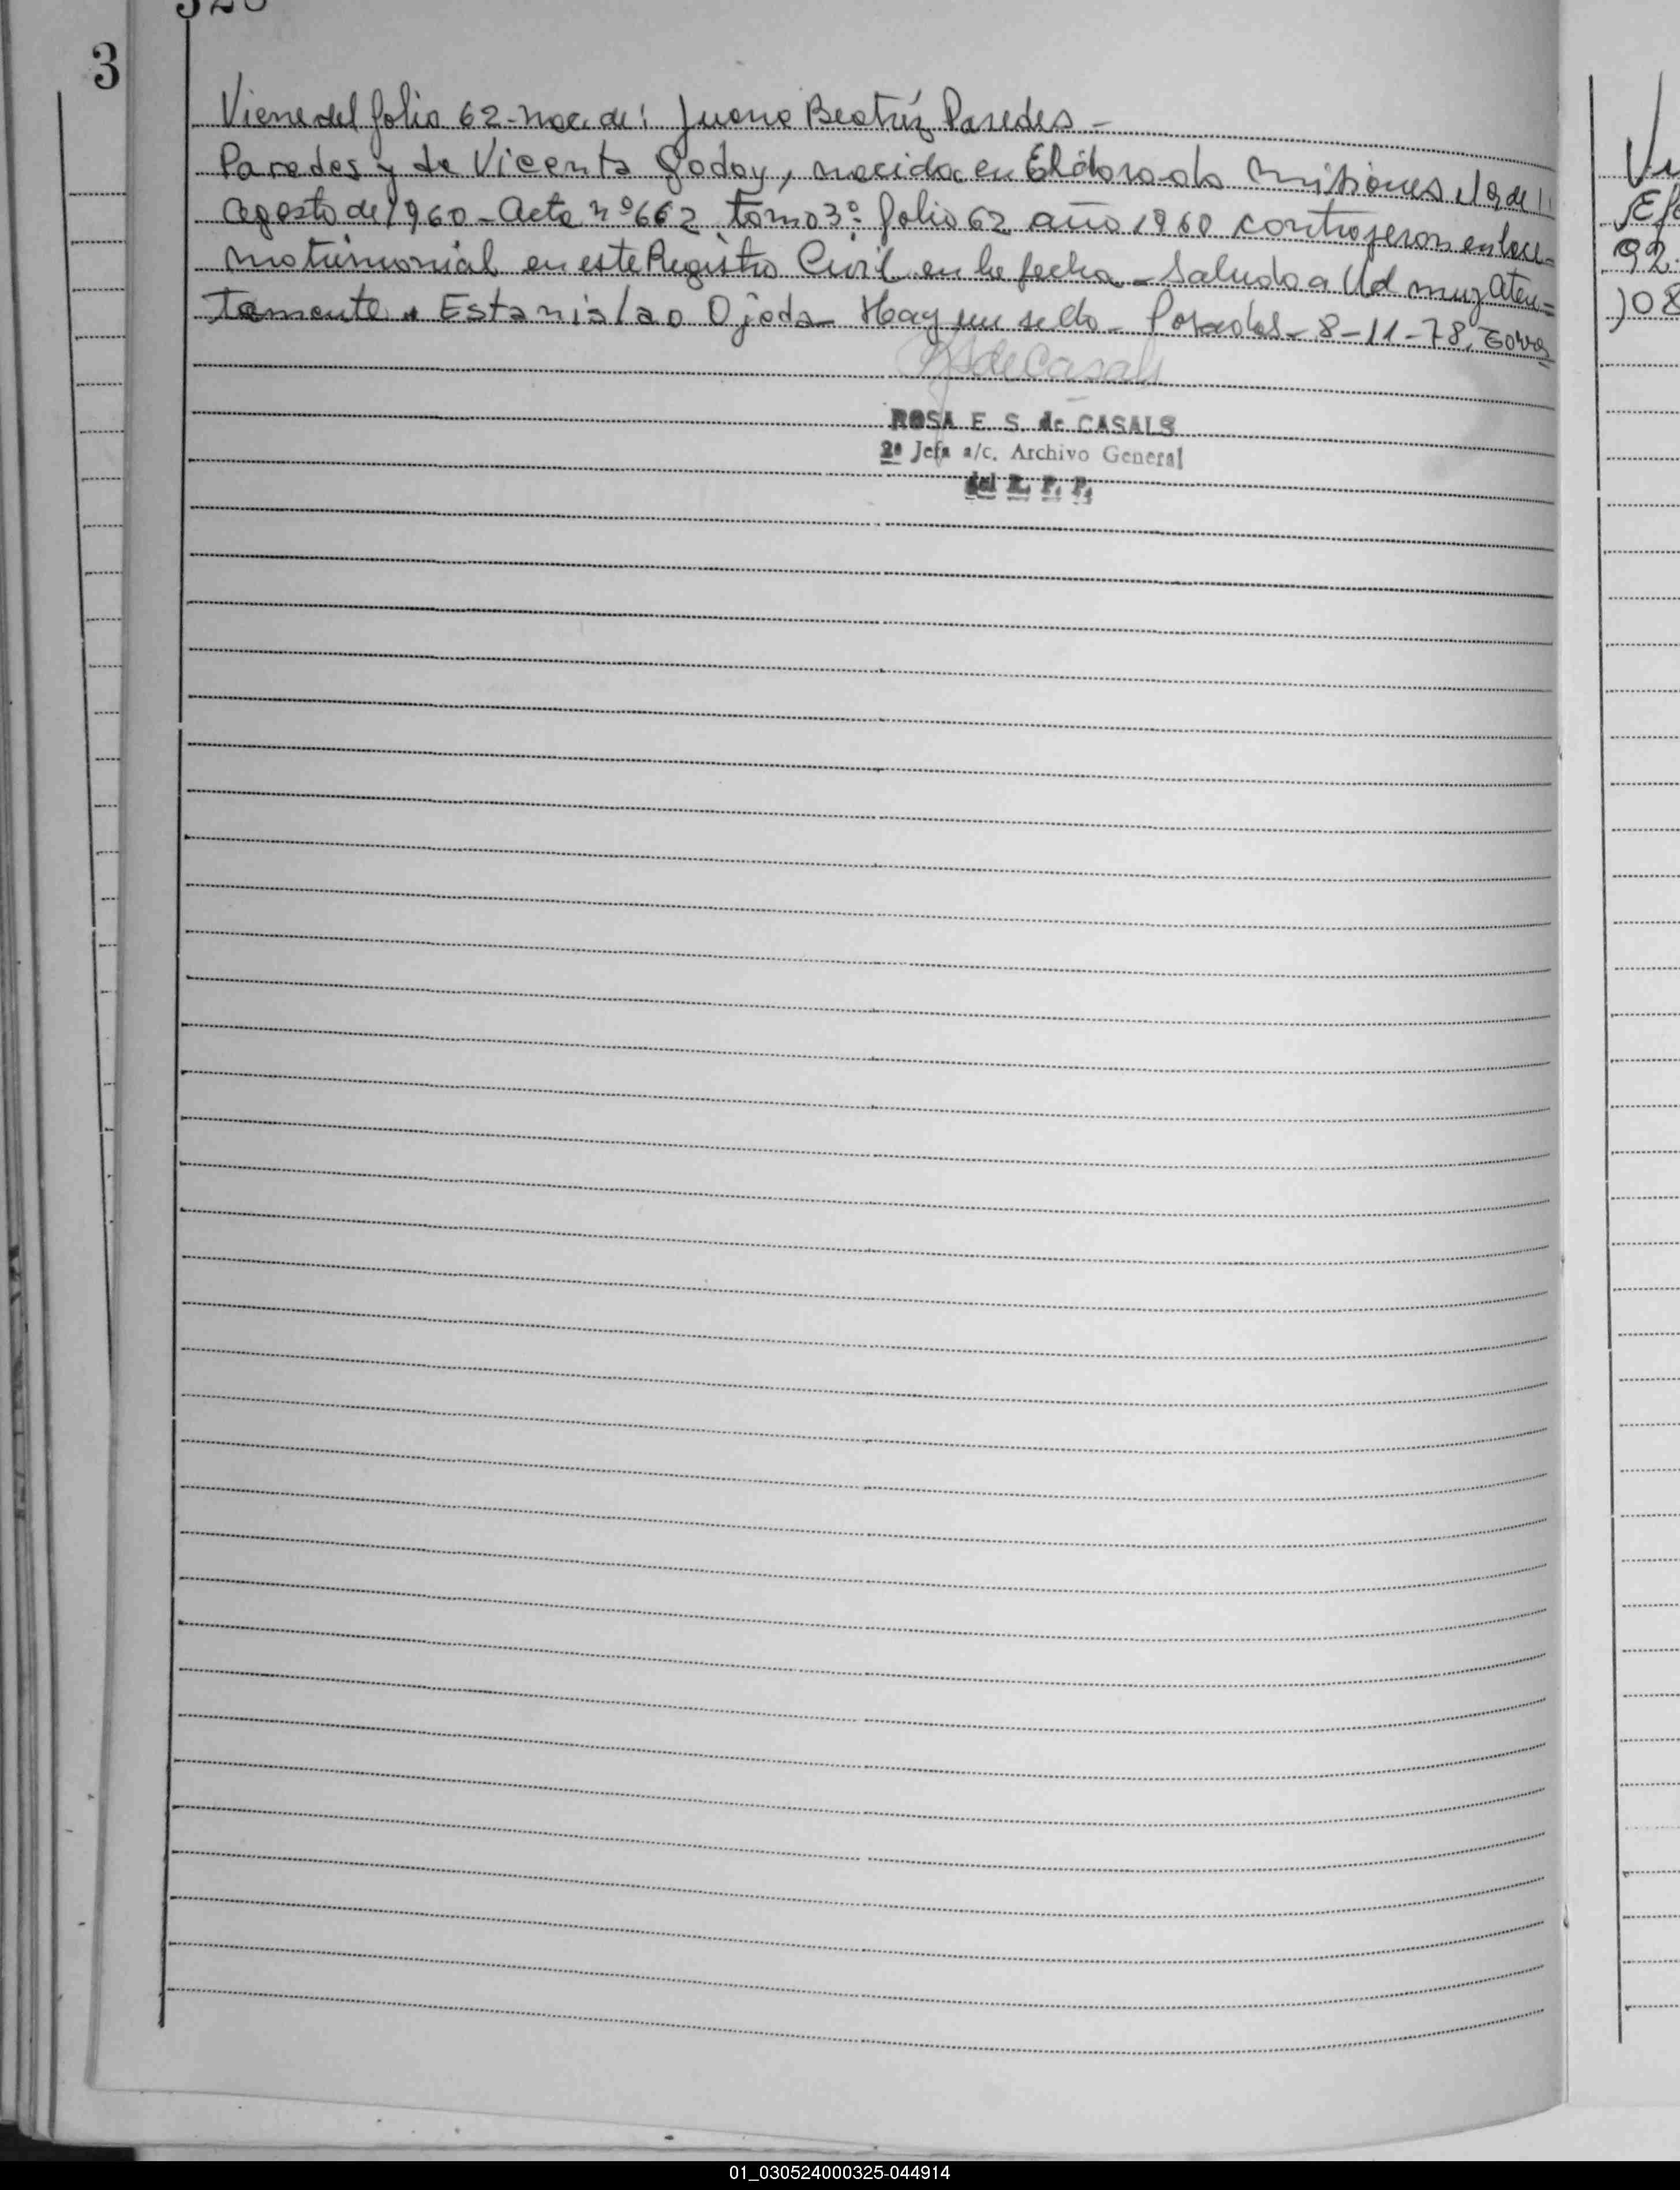 3
Viene del folio 62 - nac. de: Juana Beatríz Paredes -
Paredes y de Vicenta Godoy, nacida en Eldorado Misiones el 9 de
agosto de 1960 - Acta nº 662 tomo 3º folio 62 año 1960 contrajeron enlace
matrimonial en este Registro Civil en la fecha - Saludo a Ud muy aten-
tamente. Estanislao Ojeda - Hay un sello - Posadas - 8-11-78.
ROSA E. S. de CASALS
2ª Jefa a/c. Archivo General
del R. P. P.
92
01_030524000325-044914